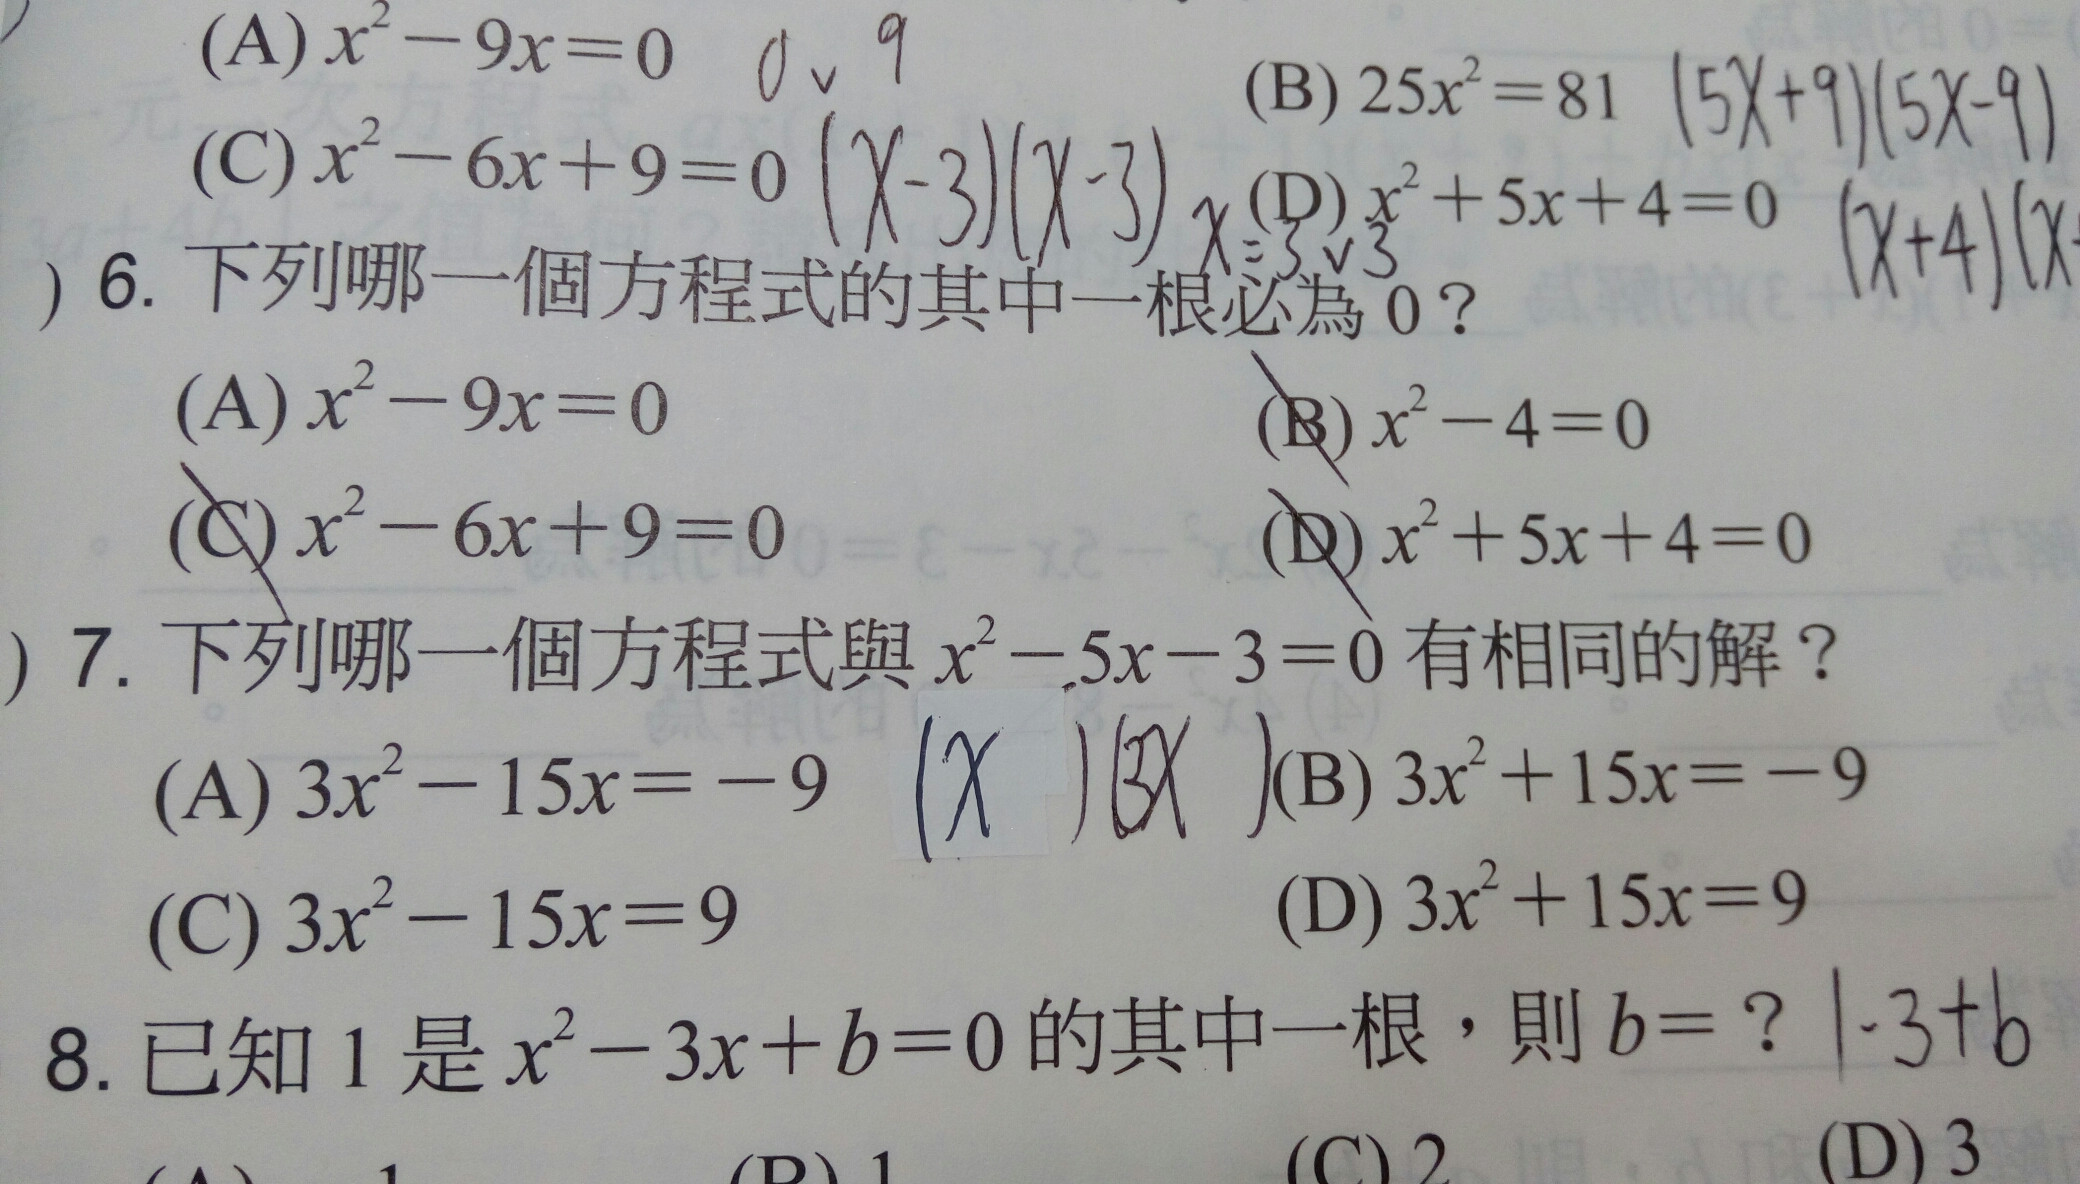 (A) x²－9x＝0 0 ∨ 9
(B) 25x²＝81 (5X+9)(5X-9)
(C) x²－6x＋9＝0 (X-3)(X-3) x=3 ∨ 3
(D) x²＋5x＋4＝0 (X+4)(X+
) 6. 下列哪一個方程式的其中一根必為 0？
(A) x²－9x＝0
(B) x²－4＝0
(C) x²－6x＋9＝0
(D) x²＋5x＋4＝0
) 7. 下列哪一個方程式與 x²－5x－3＝0 有相同的解？
(A) 3x²－15x＝－9 (X )(3X )
(B) 3x²＋15x＝－9
(C) 3x²－15x＝9
(D) 3x²＋15x＝9
8. 已知 1 是 x²－3x＋b＝0 的其中一根，則 b＝？ 1-3+b
(B) 1
(C) 2
(D) 3